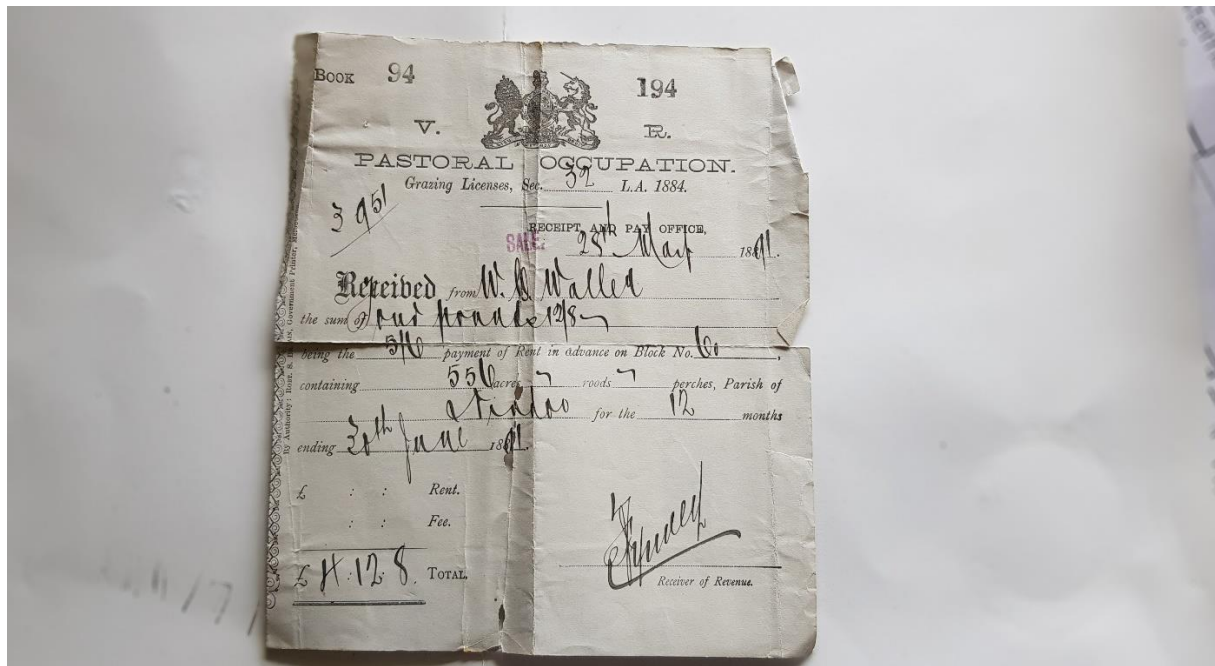 BOOK 94 194
V. R.
PASTORAL OCCUPATION.
Grazing Licenses, Sec. 32 L.A. 1884.
3951
RECEIPT AND PAY OFFICE,
SALE
28th 1891.
Received from W.
the sum of four pounds 12/8
being the payment of Rent in advance on Block No.
containing 556 acres roods perches, Parish of
for the 12 months
ending 30th June 1891.
£ : : Rent.
: : Fee.
£ 4:12:8. TOTAL.
Receiver of Revenue.
By Authority: Government Printer,